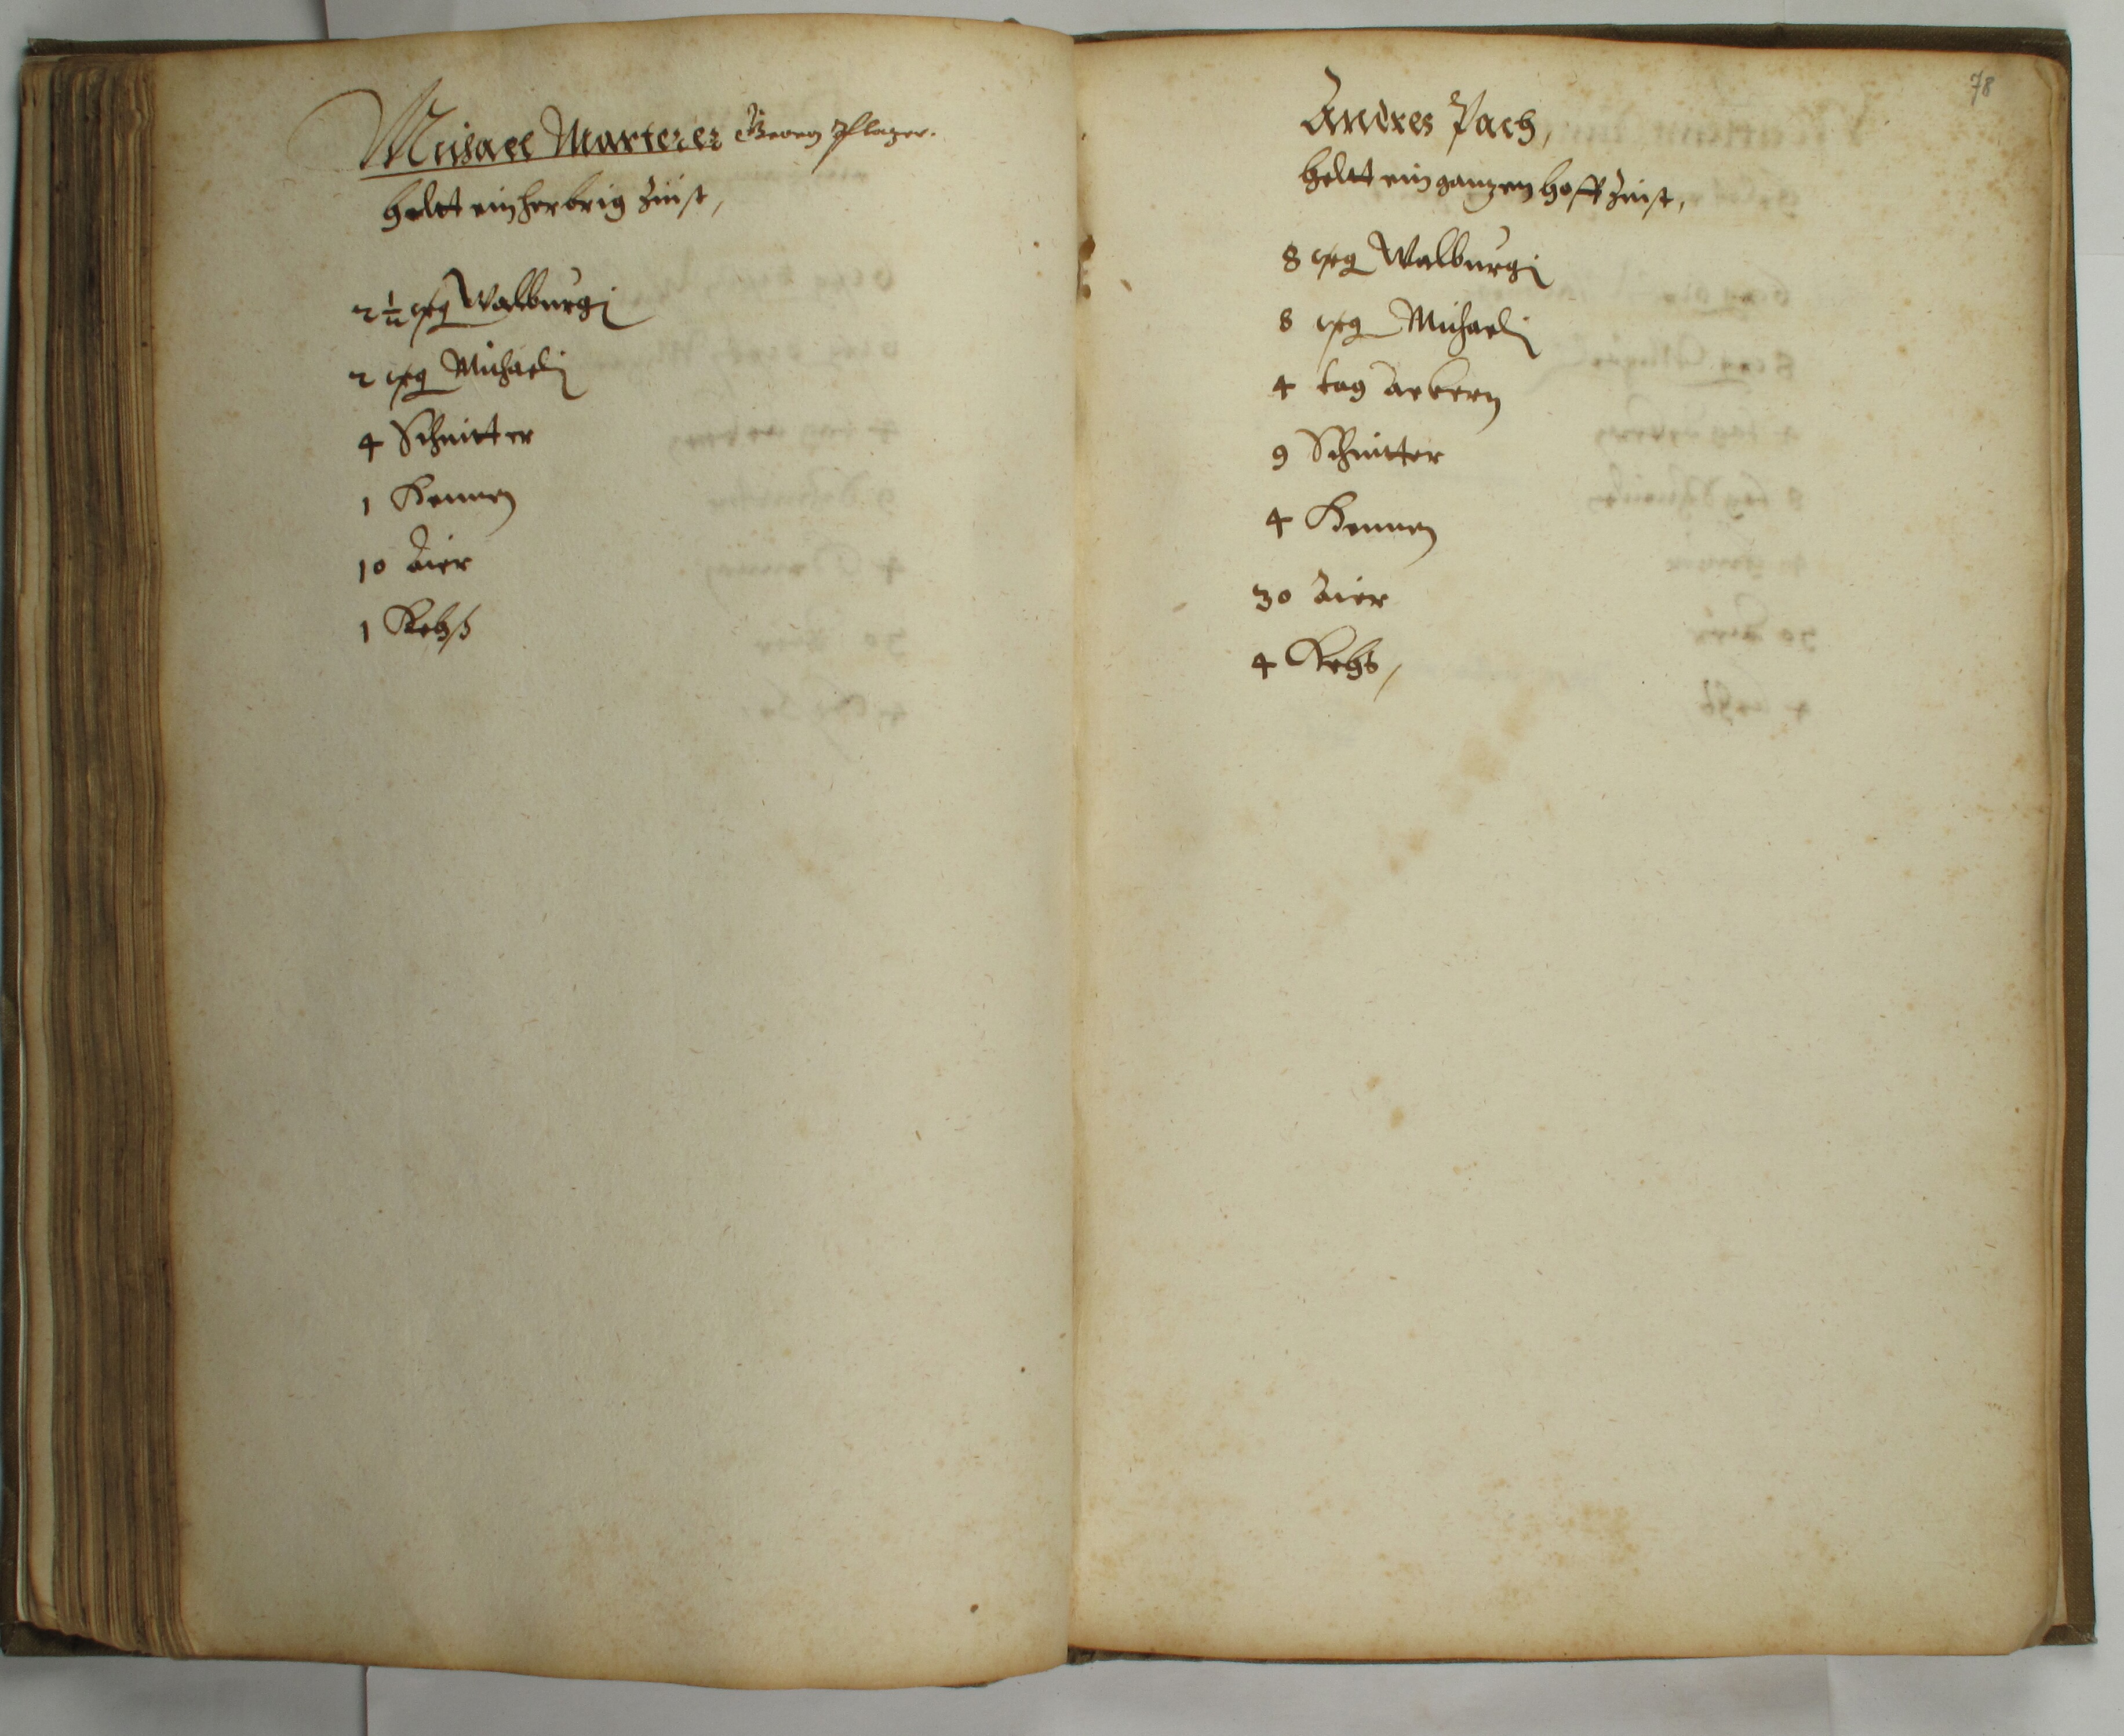 Michael Marterer Georg Plazer.
heltt ein herbrig Zinst,
2 1/2 grg Walburgi
2 grg Michaeli
4 Schnitter
1 Hennen
10 Aier
1 Kehß
78
Andres Pach,
heltt ein ganzen hoff Zinst,
8 grg Walburgi
8 grg Michaeli
4 tag Ackern
9 Schnitter
4 Hennen
30 Aier
4 Kehs,